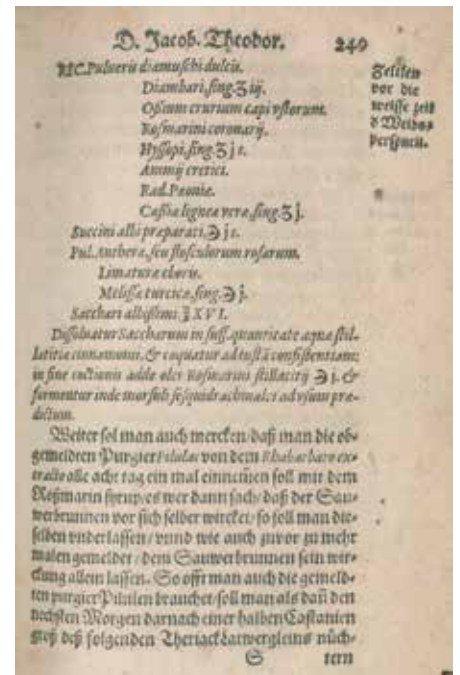 D. Jacob. Theodor. 249
REC. Pulveris diamuschi dulcis.
Diambari, sing. ʒ iij.
Ossium crurium capi vstorum.
Rosmarini coronarij.
Hyssopi, sing. ʒ j s.
Ammij cretici.
Rad. Pæoniæ.
Cassiæ ligneæ veræ, sing. ʒ j.
Succini albi præparati. ℈ j s.
Pul. Antheræ, seu flosculorum rosarum.
Limaturæ eboris.
Melissæ turcicæ, sing. ℈ j.
Sacchari albissimi. ℥ XVI.
Dissoluatur Saccharum in suff. quantitate aquæ stil-
latitiæ cinnamomi, & coquatur ad iustā consistentiam:
in fine coctionis adde olei Rosmarini stillatitij ℈ j. &
formentur inde morsuli sesquidrachmales ad vsum præ-
dictum.
Zeltlen
vor die
weisse zeit
d Weibs-
personen.
Weiter sol man auch mercken / daß man die ob-
gemeldten Purgier Pilulas von dem Rhabarbaro ex-
tracto alle acht tag ein mal einnem̄en soll mit dem
Roßmarin syrup / es wer dann sach / daß der Sau-
werbrunnen vor sich selber wircket / so soll man die-
selben vnderlassen / vnnd wie auch zuvor zu mehr
malen gemeldet / dem Sauwerbrunnen sein wir-
ckung allein lassen. So offt man auch die gemeld-
ten purgier Pillulen brauchet / soll man als dañ den
nechsten Morgen darnach einer halben Castanien
groß deß folgenden Theriack Latwergleins nüch-
S tern